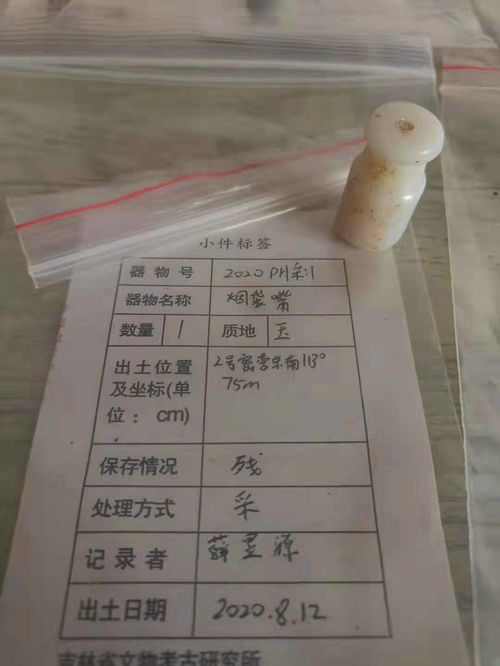 小件标签
器物号 2020PH采:1
器物名称 烟袋嘴
数量 1 质地 玉
出土位置 2号窑址东南113°
及坐标(单 75m
位：cm)
保存情况 残
处理方式 采
记录者 薛昱源
出土日期 2020.8.12
吉林省文物考古研究所